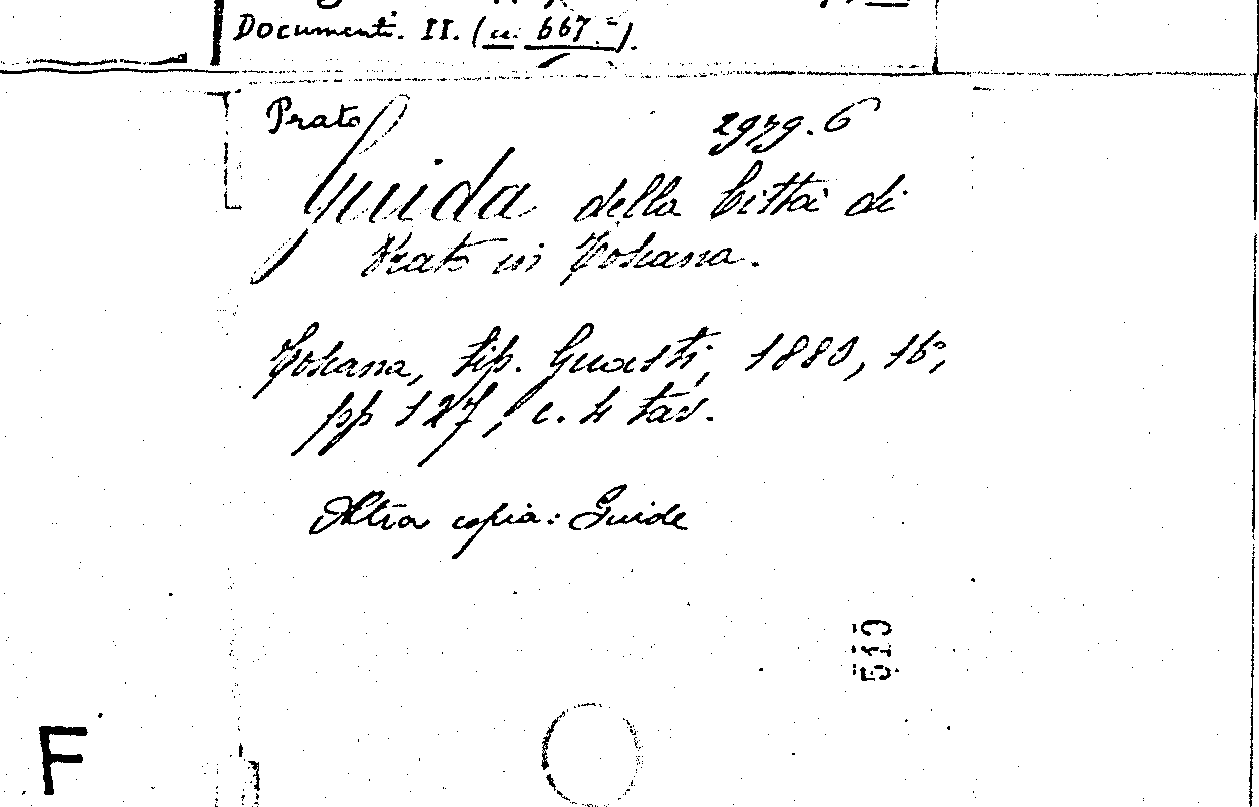 Documenti. II. (n. 667.-).
Prato
2979.6
Guida della Città di
Prato in Toscana.
Toscana, tip. Guasti, 1880, 16°,
pp 127, c. 4 tav.
Altra copia: Guide
510
F